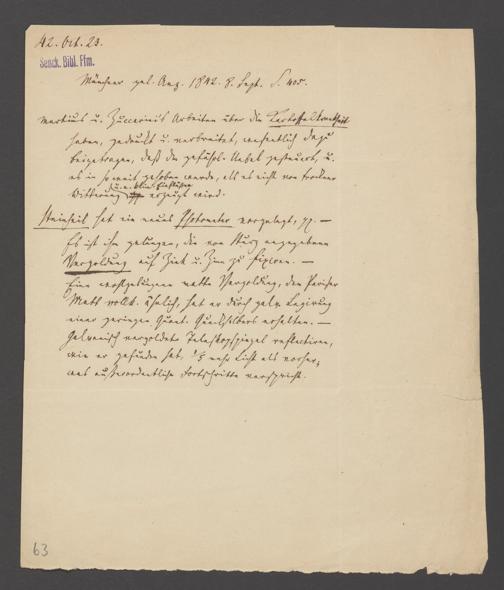 42. Oct. 23.
Senck. Bibl. Ffm.
Münchner gel. Anz. 1842. 8. Sept. S. 405.
Martius u. Zuccarini's Arbeiten über die Kartoffelkrankheit
haben, gedruckt u. verbreitet, wesentlich dazu
beigetragen, daß dem gefährl. Uebel gesteuert, u.
es in soweit gehoben werde, als es nicht von trockner
u. a. klim. Einflüssen
Witterung erzeugt wird.
Steinheil hat ein neues Photometer vorgelegt, pp. —
Es ist ihm gelungen, die von angegebene
Vergoldung auf Zink u. Zinn zu fixiren. —
Eine wohlgelungene matte Vergoldung, dem Pariser
Matt vollk. ähnlich, hat er durch galv. Legirung
einer geringen Quant. Quecksilbers erhalten. —
Galvanisch vergoldete Teleskopspiegel reflectiren,
wie er gefunden hat, mehr Licht als vorher,
was außerordentliche Fortschritte verspricht.
63